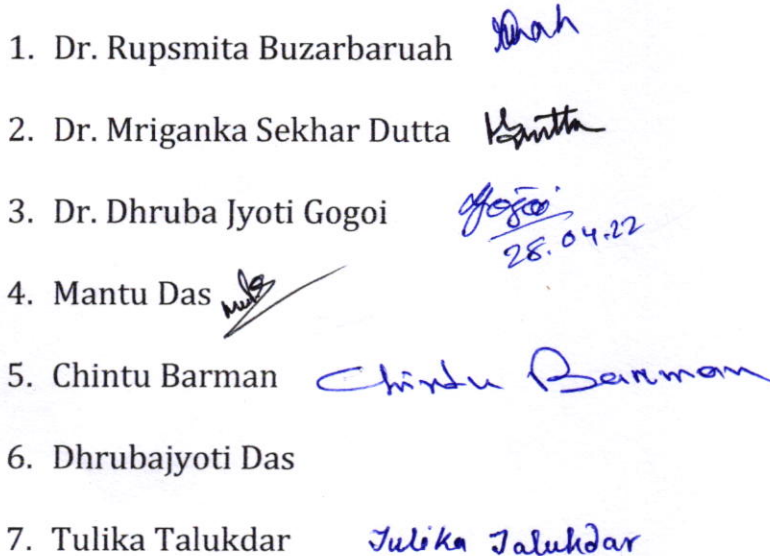 1. Dr. Rupsmita Buzarbaruah
2. Dr. Mriganka Sekhar Dutta Dutta
3. Dr. Dhruba Jyoti Gogoi Gogoi
28.04.22
4. Mantu Das
5. Chintu Barman Chintu Barman
6. Dhrubajyoti Das
7. Tulika Talukdar Tulika Talukdar